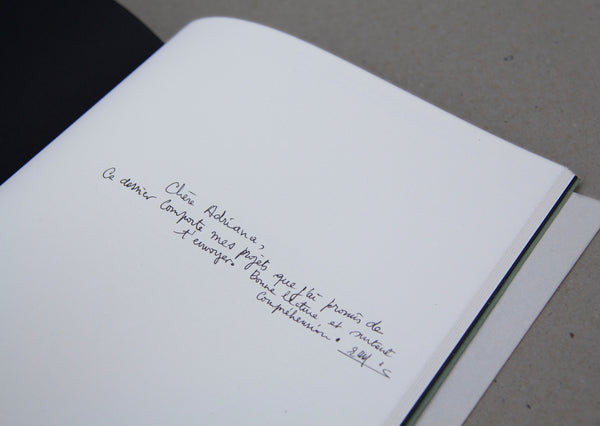 Chère Adriana,
Ce dossier comporte mes projets que j'ai promis de
t'envoyer. Bonne lecture et surtout
compréhension.